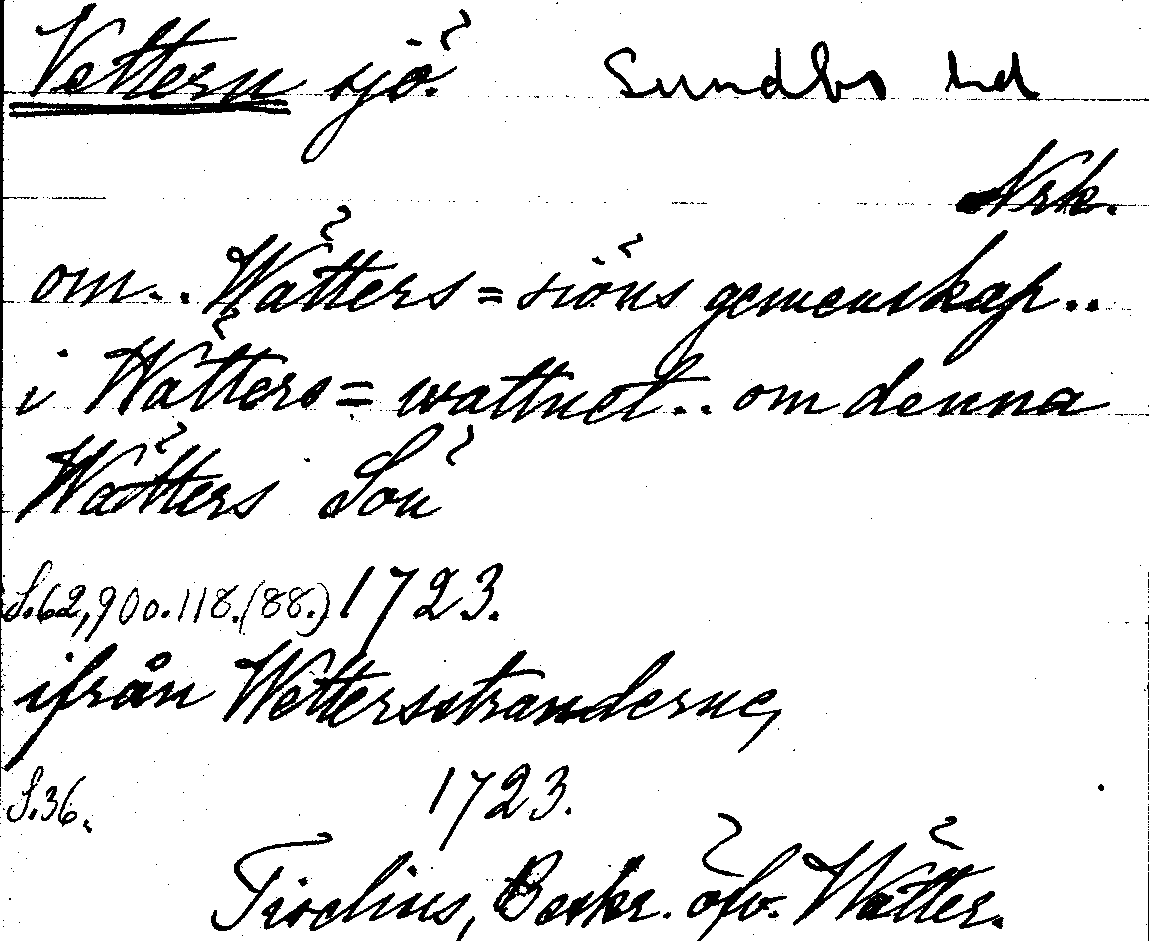 Vettern sjö. Sundbo hd
Nrk.
om.. Wätters=siöns gemenskap..
i Wätters=wattnet.. om denna
Wätters Sön
S.62,900.118.(88.) 1723.
ifrån Wettersstranderne,
S.36. 1723.
Tiselius, Beskr. öfv. Wätter.